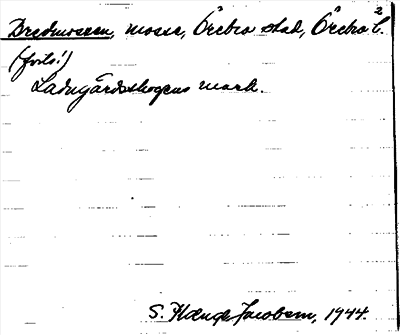 2
Bredmossen, mosse, Örebro stad, Örebro l.
(forts!)
Ladugårdsskogens mark.
S. Hænge Jacobsen, 1944.